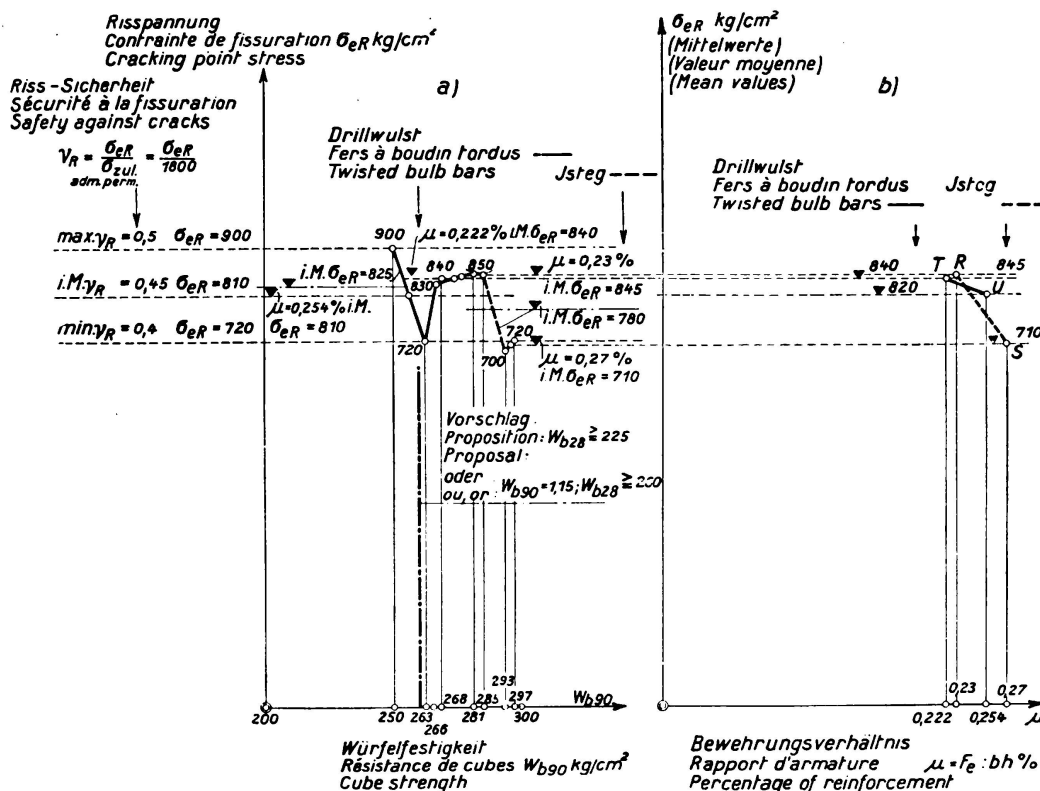 Risspannung
Contrainte de fissuration σeR kg/cm²
Cracking point stress
Riss-Sicherheit
Sécurité à la fissuration
Safety against cracks
νR = σeR / σzul. = σeR / 1800
adm. perm.
a)
Drillwulst
Fers à boudin tordus
Twisted bulb bars
Jsteg
max. νR = 0,5 σeR = 900
900
μ = 0,222% i.M. σeR = 840
i.M. σeR = 825
840
850
μ = 0,23 %
i.M. νR = 0,45 σeR = 810
830
i.M. σeR = 845
μ = 0,254% i.M.
i.M. σeR = 780
min. νR = 0,4 σeR = 720
σeR = 810
720
720
700
μ = 0,27 %
i.M. σeR = 710
Vorschlag
Proposition: Wb28 ≧ 225
Proposal:
oder
ou, or: Wb90 = 1,15; Wb28 ≧ 260
293
268
285
297
Wb90
200
250
263
281
300
266
Würfelfestigkeit
Résistance de cubes Wb90 kg/cm²
Cube strength
σeR kg/cm²
(Mittelwerte)
(Valeur moyenne)
(Mean values)
b)
Drillwulst
Fers à boudin tordus
Jsteg
Twisted bulb bars
840
T R
845
820
U
710
S
0,23
0,27
0,222
0,254
μ
Bewehrungsverhältnis
Rapport d'armature μ = Fe : bh %
Percentage of reinforcement